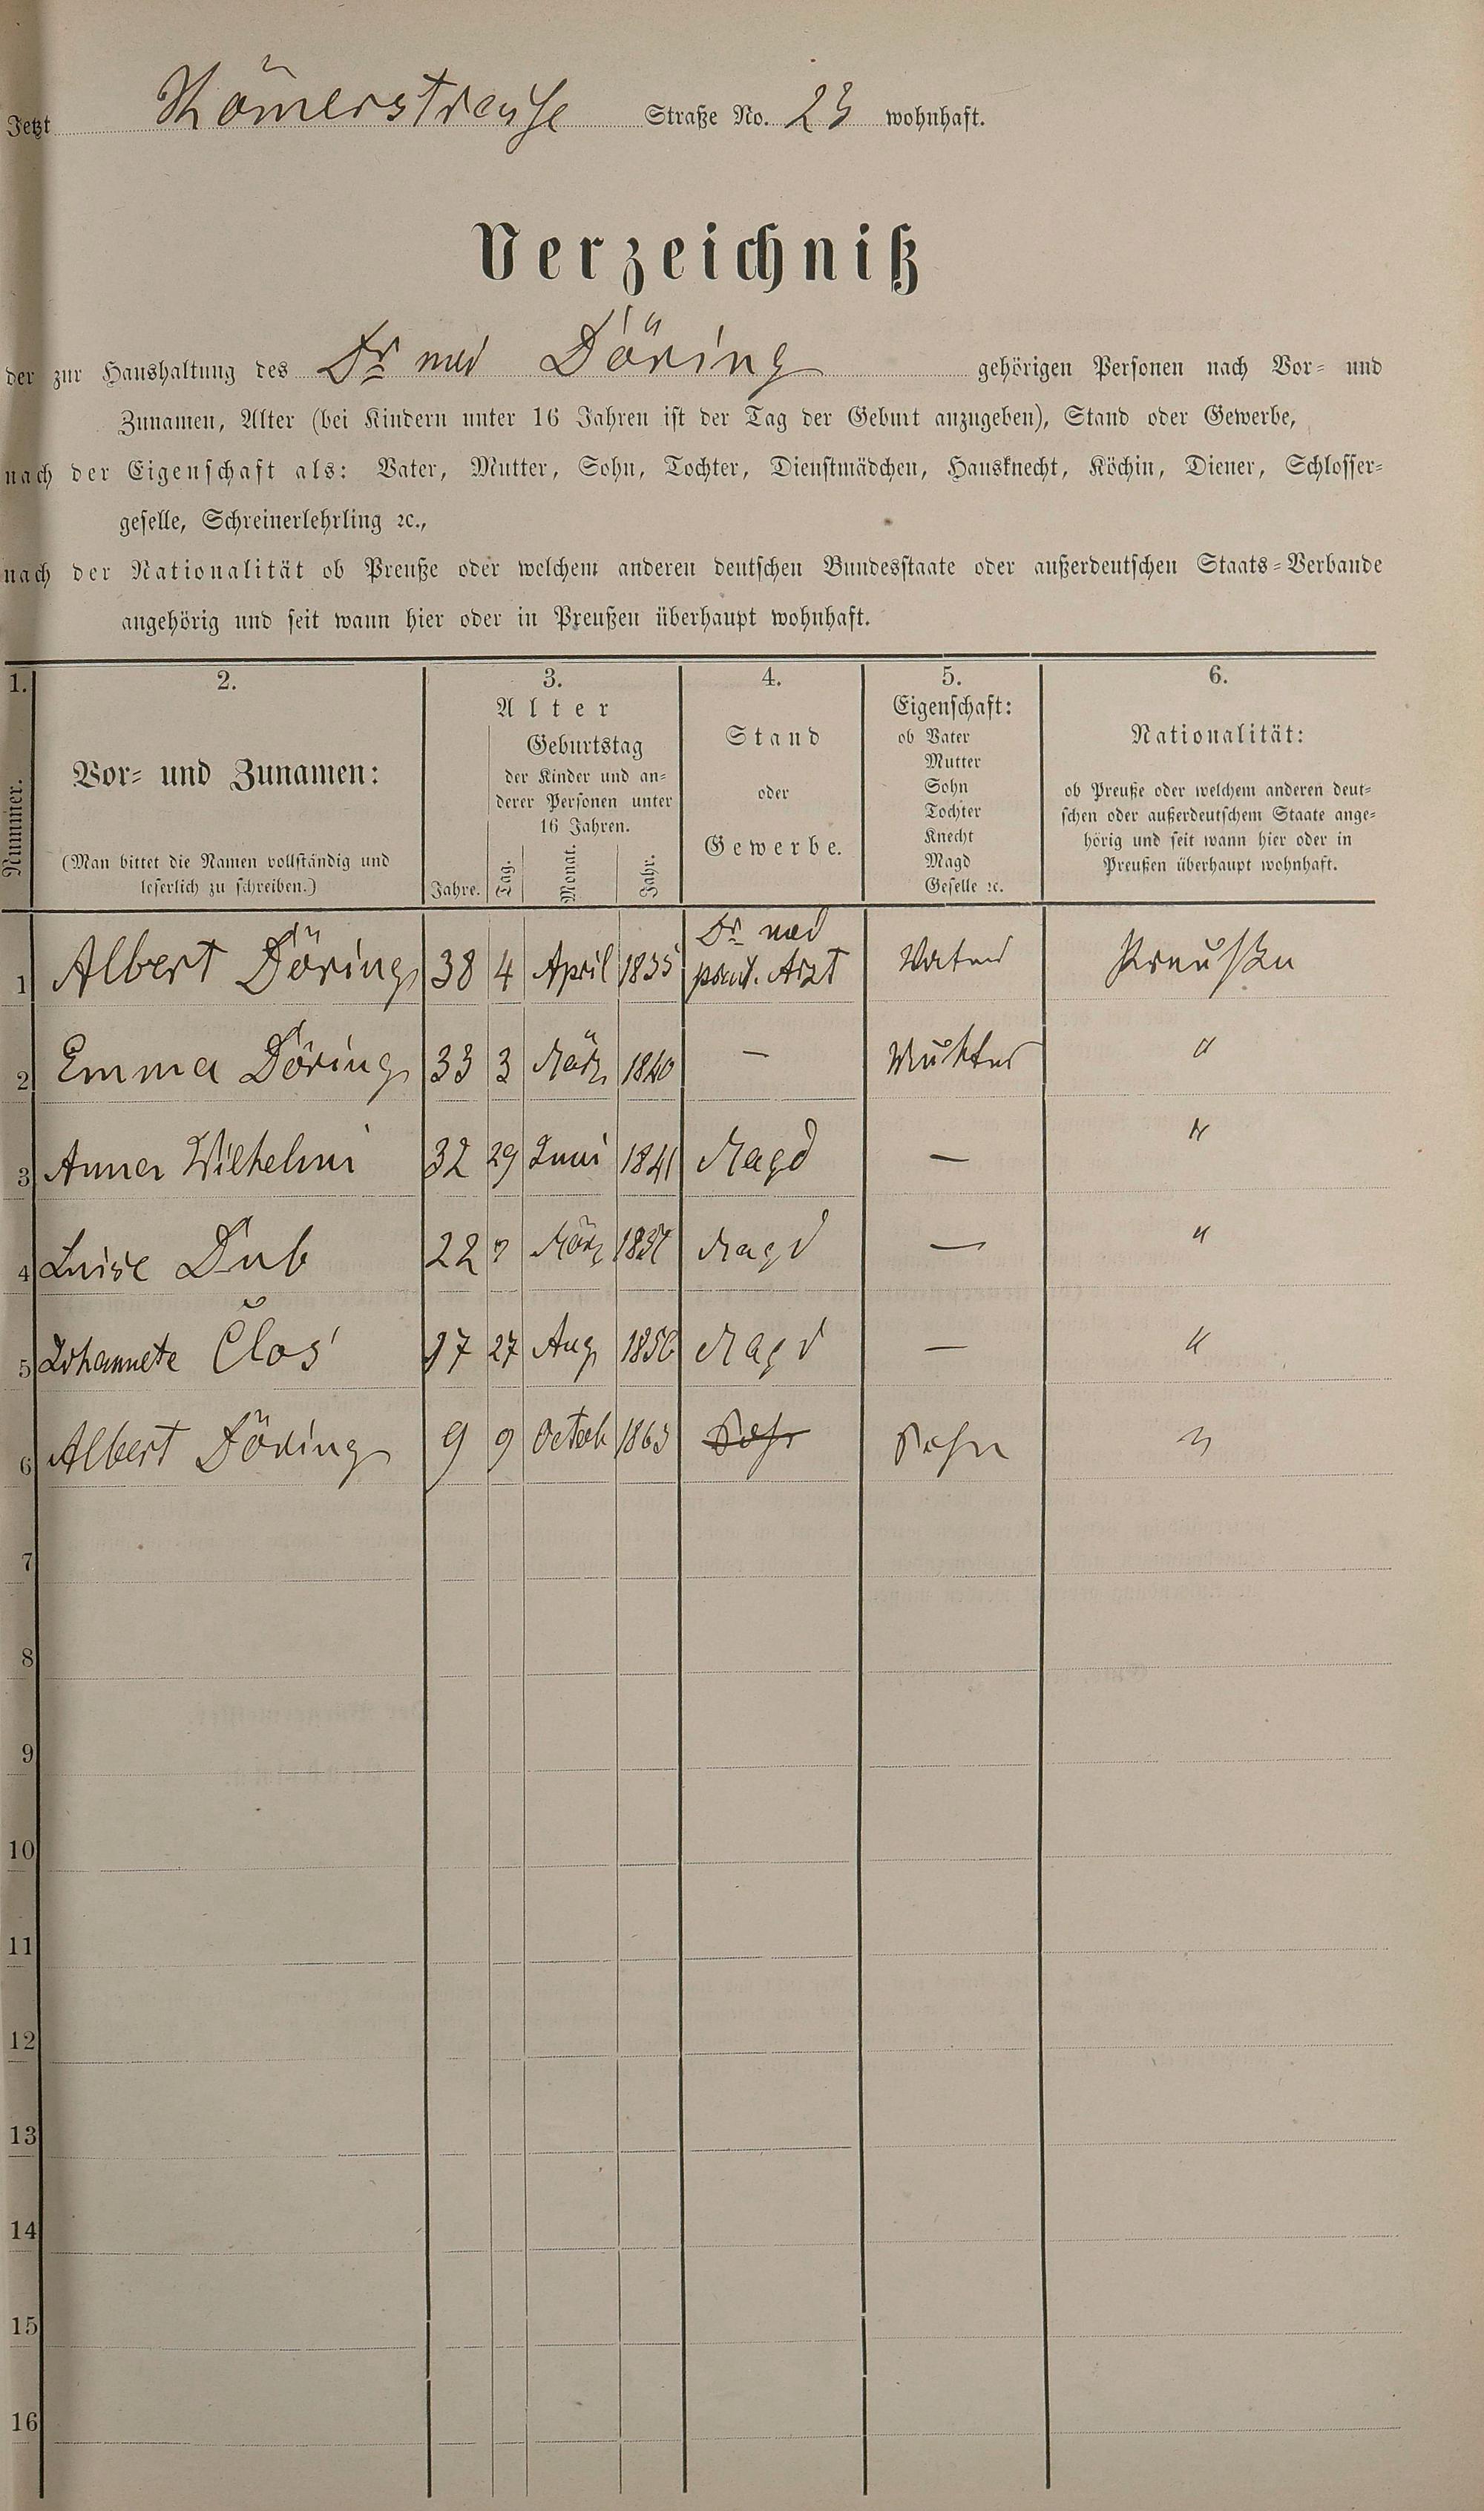 Jetzt Römerstrasse Straße No. 23 wohnhaft.
Verzeichniß
der zur Haushaltung des Dr med Döring gehörigen Personen nach Vor- und
Zunamen, Alter (bei Kindern unter 16 Jahren ist der Tag der Geburt anzugeben), Stand oder Gewerbe,
nach der Eigenschaft als: Vater, Mutter, Sohn, Tochter, Dienstmädchen, Hausknecht, Köchin, Diener, Schlosser-
geselle, Schreinerlehrling ꝛc.,
nach der Nationalität ob Preuße oder welchem anderen deutschen Bundesstaate oder außerdeutschen Staats-Verbande
angehörig und seit wann hier oder in Preußen überhaupt wohnhaft.
1. 2. 3. 4. 5. 6.
Nummer.
Vor- und Zunamen:
(Man bittet die Namen vollständig und
leserlich zu schreiben.)
Alter
Jahre.
Geburtstag
der Kinder und an-
derer Personen unter
16 Jahren.
Tag. Monat. Jahr.
Stand
oder
Gewerbe.
Eigenschaft:
ob Vater
Mutter
Sohn
Tochter
Knecht
Magd
Geselle ꝛc.
Nationalität:
ob Preuße oder welchem anderen deut-
schen oder außerdeutschem Staate ange-
hörig und seit wann hier oder in
Preußen überhaupt wohnhaft.
Dr med
1 Albert Döring 38 4 April 1835 prakt. Arzt Vater Preußen
2 Emma Döring 33 3 März 1840 — Mutter "
3 Anna Wilhelmi 32 29 Juni 1841 Magd — "
4 Luise Dub 22 März Magd — "
5 Johannete Clos 17 27 Aug 1856 Magd — "
6 Albert Döring 9 9 Octob 1863 Sohn Sohn "
7
8
9
10
11
12
13
14
15
16